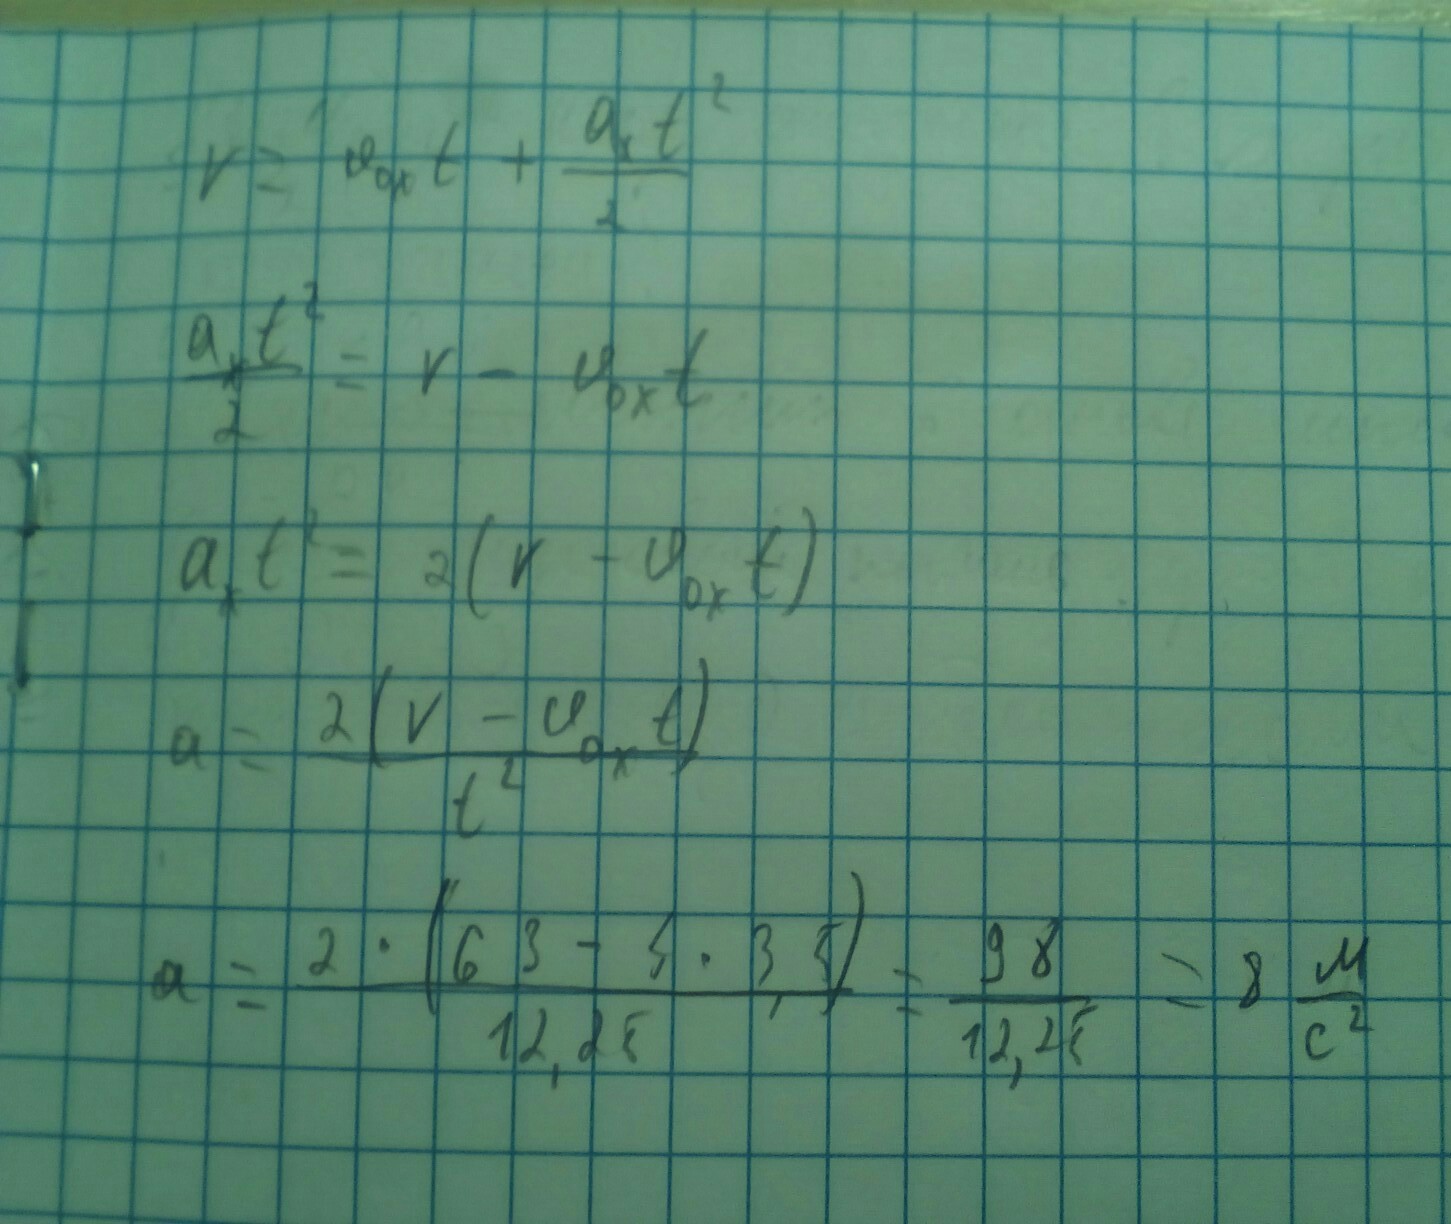 r = υ₀ₓt + aₓt²/2
aₓt²/2 = r - υ₀ₓt
aₓt² = 2(r - υ₀ₓt)
a = 2(r - υ₀ₓt)/t²
a = 2 · (63 - 5 · 3,5)/12,25 = 98/12,25 = 8 м/с²